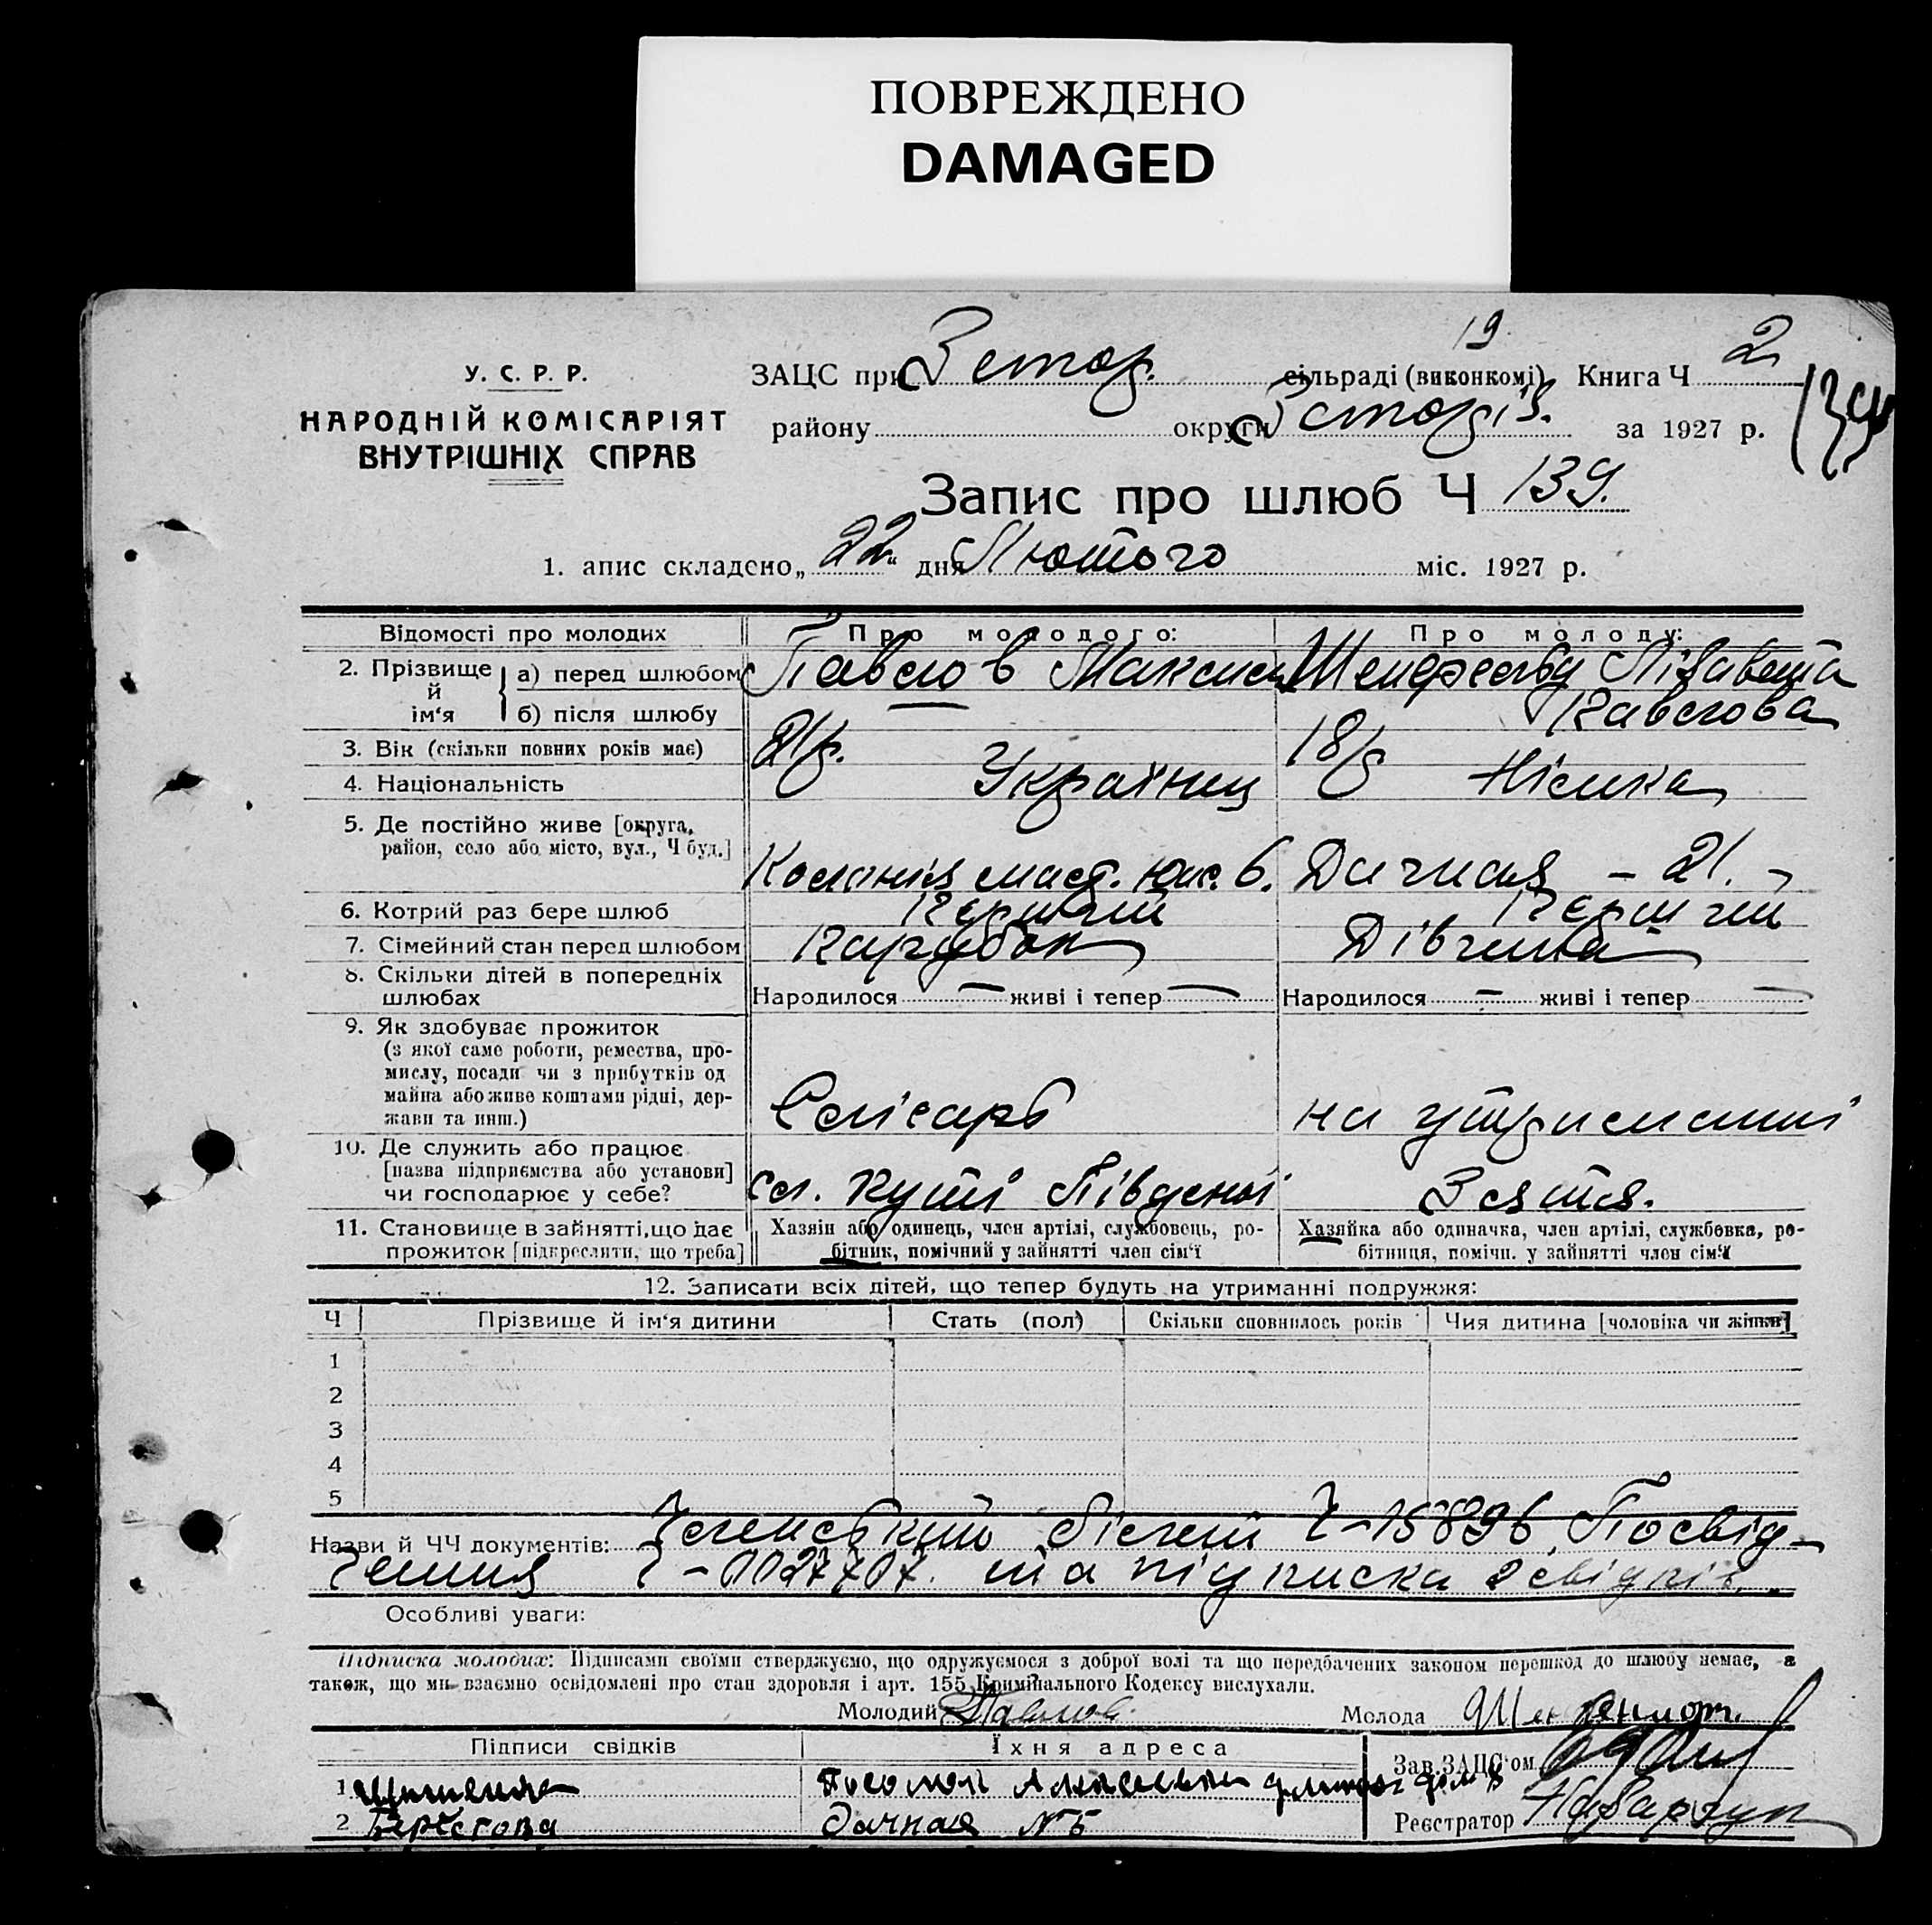 ПОВРЕЖДЕНО
DAMAGED
19.
У. С. Р. Р.
НАРОДНІЙ КОМІСАРІЯТ
ВНУТРІШНІХ СПРАВ
ЗАЦС при сільраді (виконкомі) Книга Ч 2
району округи за 1927 р.
139
Запис про шлюб Ч 139.
1. апис складено „22“ дня Лютого міс. 1927 р.
Відомості про молодих Про молодого: Про молоду:
2. Прізвище й ім‘я а) перед шлюбом Павлов Максим Лізавета
б) після шлюбу Павлова
3. Вік (скільки повних років має) 21/р. 18/р
4. Національність Українец Німка
5. Де постійно живе [округа, район, село або місто, вул., Ч буд.] Колонія 6. Дачная – 21. –
6. Котрий раз бере шлюб Перший Перший
7. Сімейний стан перед шлюбом Парубок Дівчина
8. Скільки дітей в попередніх шлюбах Народилося — живі і тепер — Народилося — живі і тепер —
9. Як здобуває прожиток
(з якої саме роботи, ремества, про-
мислу, посади чи з прибутків од
майна або живе коштами рідні, дер-
жави та инш.) Слісарь на утриманні
10. Де служить або працює
[назва підприємства або установи]
чи господарює у себе? Південні Зятя.
11. Становище в зайнятті, що дає
прожиток [підкреслити, що треба]
Хазяїн або одинець, член артілі, службовець, ро-
бітник, помічний у зайнятті член сім‘ї
Хазяйка або одиначка, член артілі, службовка, ро-
бітниця, помічн. у зайнятті член сім‘ї
12. Записати всіх дітей, що тепер будуть на утриманні подружжя:
Ч Прізвище й ім‘я дитини Стать (пол) Скільки сповнилось років Чия дитина [чоловіка чи жінки]
1
2
3
4
5
Назви й ЧЧ документів: Членський білет Ч–15896, Посвід–
чення Ч–0027707. та підписка 2 свідків.
Особливі уваги:
Підписка молодих: Підписами своїми стверджуємо, що одружуємося з доброї волі та що передбачених законом перешкод до шлюбу немає, а
також, що ми взаємно освідомлені про стан здоровля і арт. 155 Кримінального Кодексу вислухали.
Молодий Павлов Молода
Підписи свідків Їхня адреса Зав. ЗАЦС‘ом
1
2 Дачная №5 Реєстратор